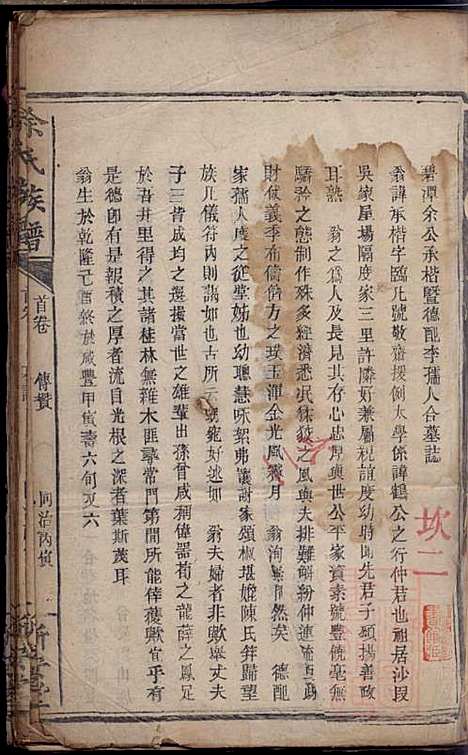 碧潭余公承楷暨德配李孺人合墓誌
翁諱承楷字臨凡號敬齋援例太學係諱鶴公之行仲君也祖居沙段
吳家屋場隔度家三里許隣好兼屬視誼度幼時聞先君子碩揚善政
耳熟 翁之為人及長見其存心忠厚與世公平家資素號豐饒毫無
驕矜之態制作殊多經濟悉泯狡之風與夫排難解紛仲連流亞疏
財仗義季布儔方之璞玉渾金光風霽月 翁洵無然矣 德配
家孺人度之從堂姊也幼聰慧咏絮弗讓謝家頌椒堪媲陳氏笄歸望
族凡儀符內則謁如也古所云雍宛好逑如 翁夫婦者非歟舉丈夫
子三皆成均之選撮當世之雄輩出孫曾咸稱偉器荀之龍薛之鳳足
於吾井里得之其諸桂林無雜木匪掌常門第間所能倖獲歟宜乎有
是德卽有是報積之厚者流自光根之深者葉斯茂耳
翁生於乾隆己酉終於咸豐甲寅壽六旬又六
余氏族譜
首卷 傳贊
同治丙寅
新安堂
坎二